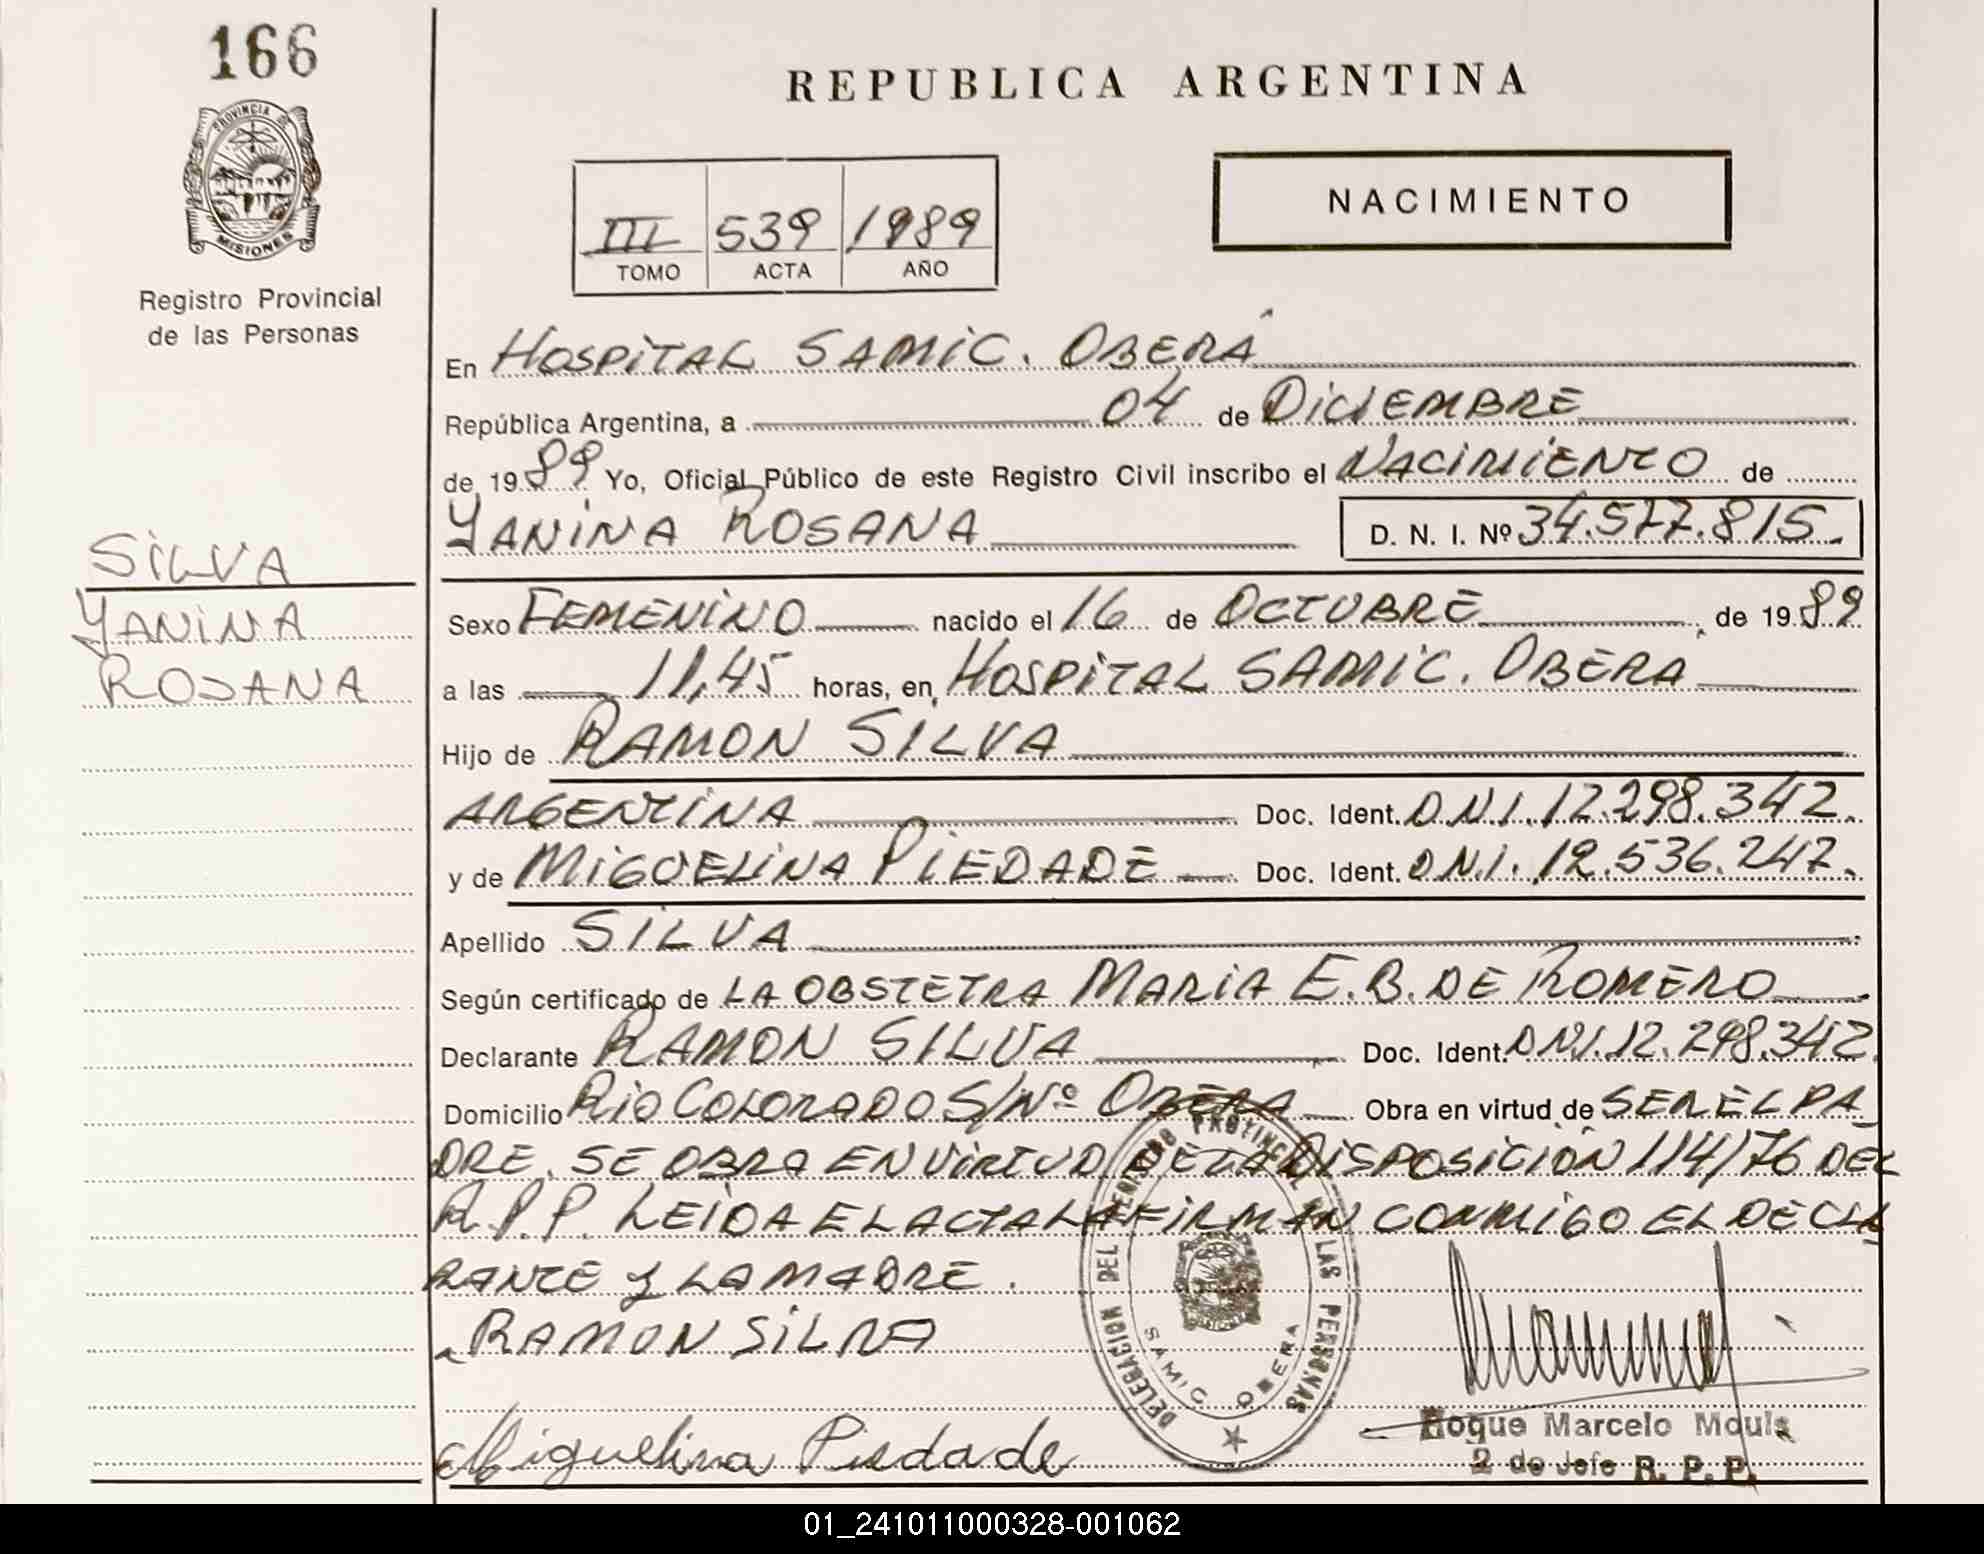 166
PROVINCIA DE
MISIONES
Registro Provincial
de las Personas
REPUBLICA ARGENTINA
III 539 1989
TOMO ACTA AÑO
NACIMIENTO
En HOSPITAL SAMIC. OBERÁ
República Argentina, a 04 de DICIEMBRE
de 1989 Yo, Oficial Público de este Registro Civil inscribo el NACIMIENTO de
YANINA ROSANA D. N. I. Nº 34.577.815.
SILVA
YANINA
ROSANA
Sexo FEMENINO nacido el 16 de OCTUBRE de 1989
a las 11,45 horas, en HOSPITAL SAMIC. OBERA
Hijo de RAMON SILVA
ARGENTINA Doc. Ident. D.N.I. 12.298.342.
y de MIGUELINA PIEDADE Doc. Ident. D.N.I. 12.536.247.
Apellido SILVA
Según certificado de LA OBSTETRA MARIA E.B. DE ROMERO
Declarante RAMON SILVA Doc. Ident. D.N.I. 12.298.342.
Domicilio RIO COLORADO S/Nº OBERA Obra en virtud de SER EL PA
DRE. SE OBRA EN VIRTUD DE LA DISPOSICIÓN 114/76 DEL
R.P.P. LEIDA EL ACTA LA FIRMAN CONMIGO EL DECLA
RANTE Y LA MADRE.
RAMON SILVA
Miguelina Piedade
DELEGACION DEL REGISTRO PROVINCIAL DE LAS PERSONAS
SAMIC OBERA
Roque Marcelo Mouls
2 do Jefe R. P. P.
01_241011000328-001062